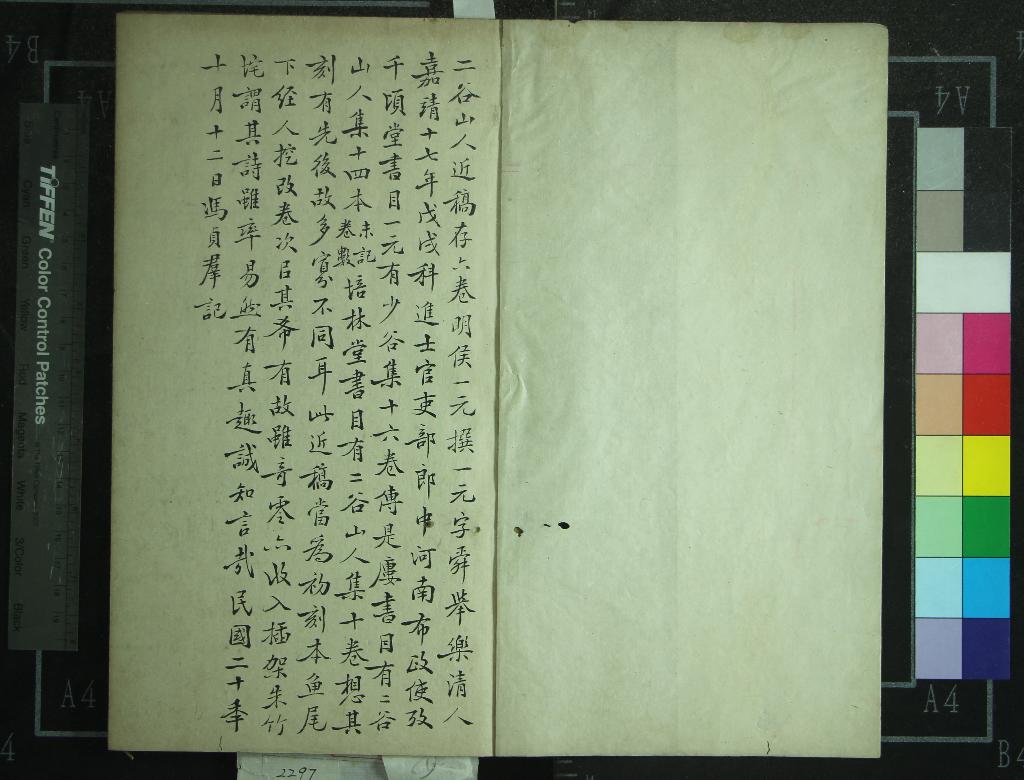 二谷山人近稿存六卷明侯一元撰一元字舜舉樂清人
嘉靖十七年戊戌科進士官吏部郎中河南布政使攷
千頃堂書目一元有少谷集十六卷傳是廔書目有二谷
山人集十四本未記卷數培林堂書目有二谷山人集十卷想其
刻有先後故多寡不同耳此近稿當為初刻本魚尾
下經人挖改卷次㠯其希有故雖奇零亦收入插架朱竹
垞謂其詩雖率易然有真趣誠知言哉民國二十年
十月十二日馮貞羣記
TIFFEN Color Control Patches
Cyan Green Yellow Red Magenta White 3/Color Black
A4
A4
A4
B4
B4
2297